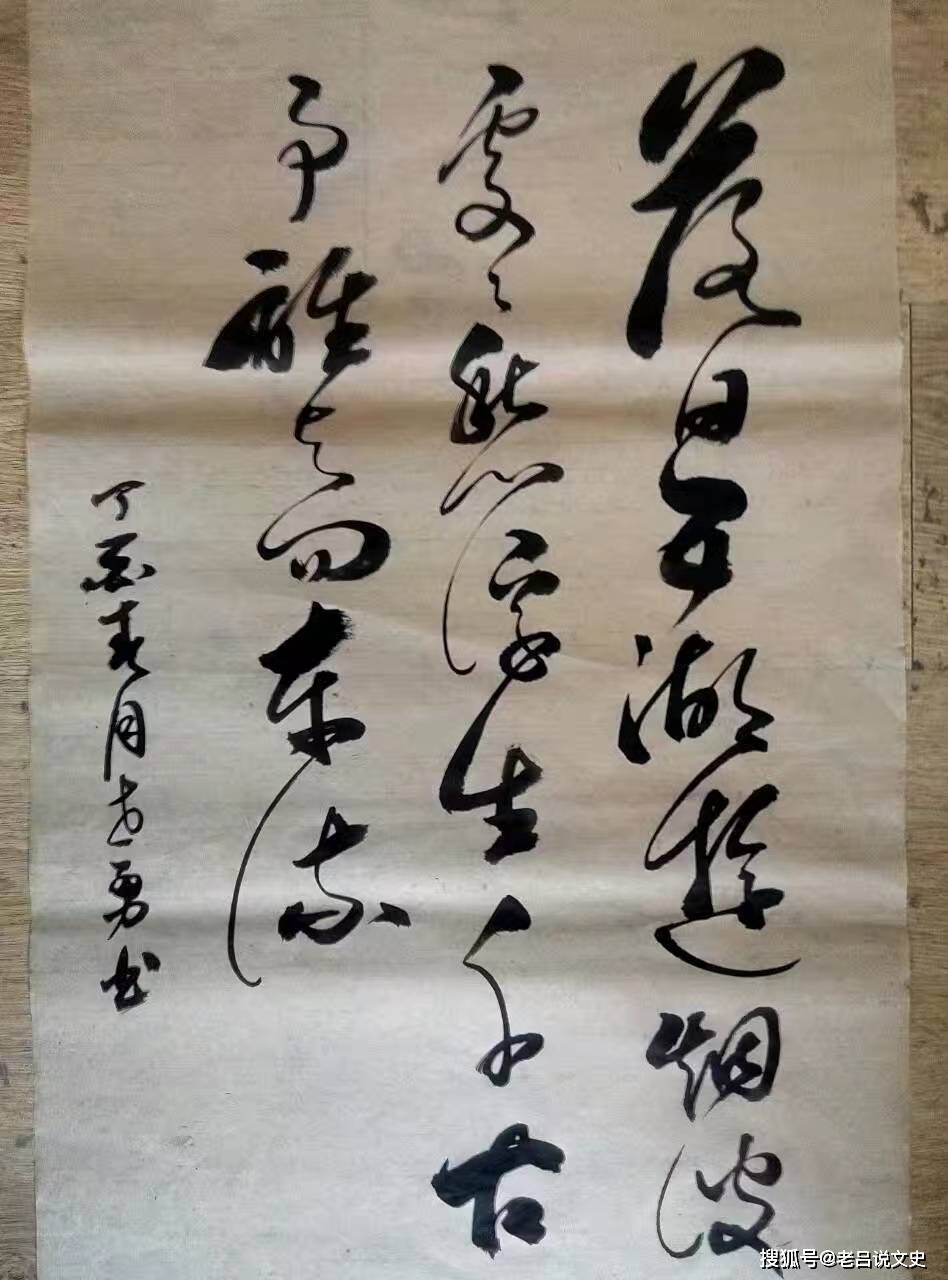 落日五湖遊烟波
處々愁浮生千古
事誰与问東流
丁酉春月志勇书
搜狐号@老吕说文史